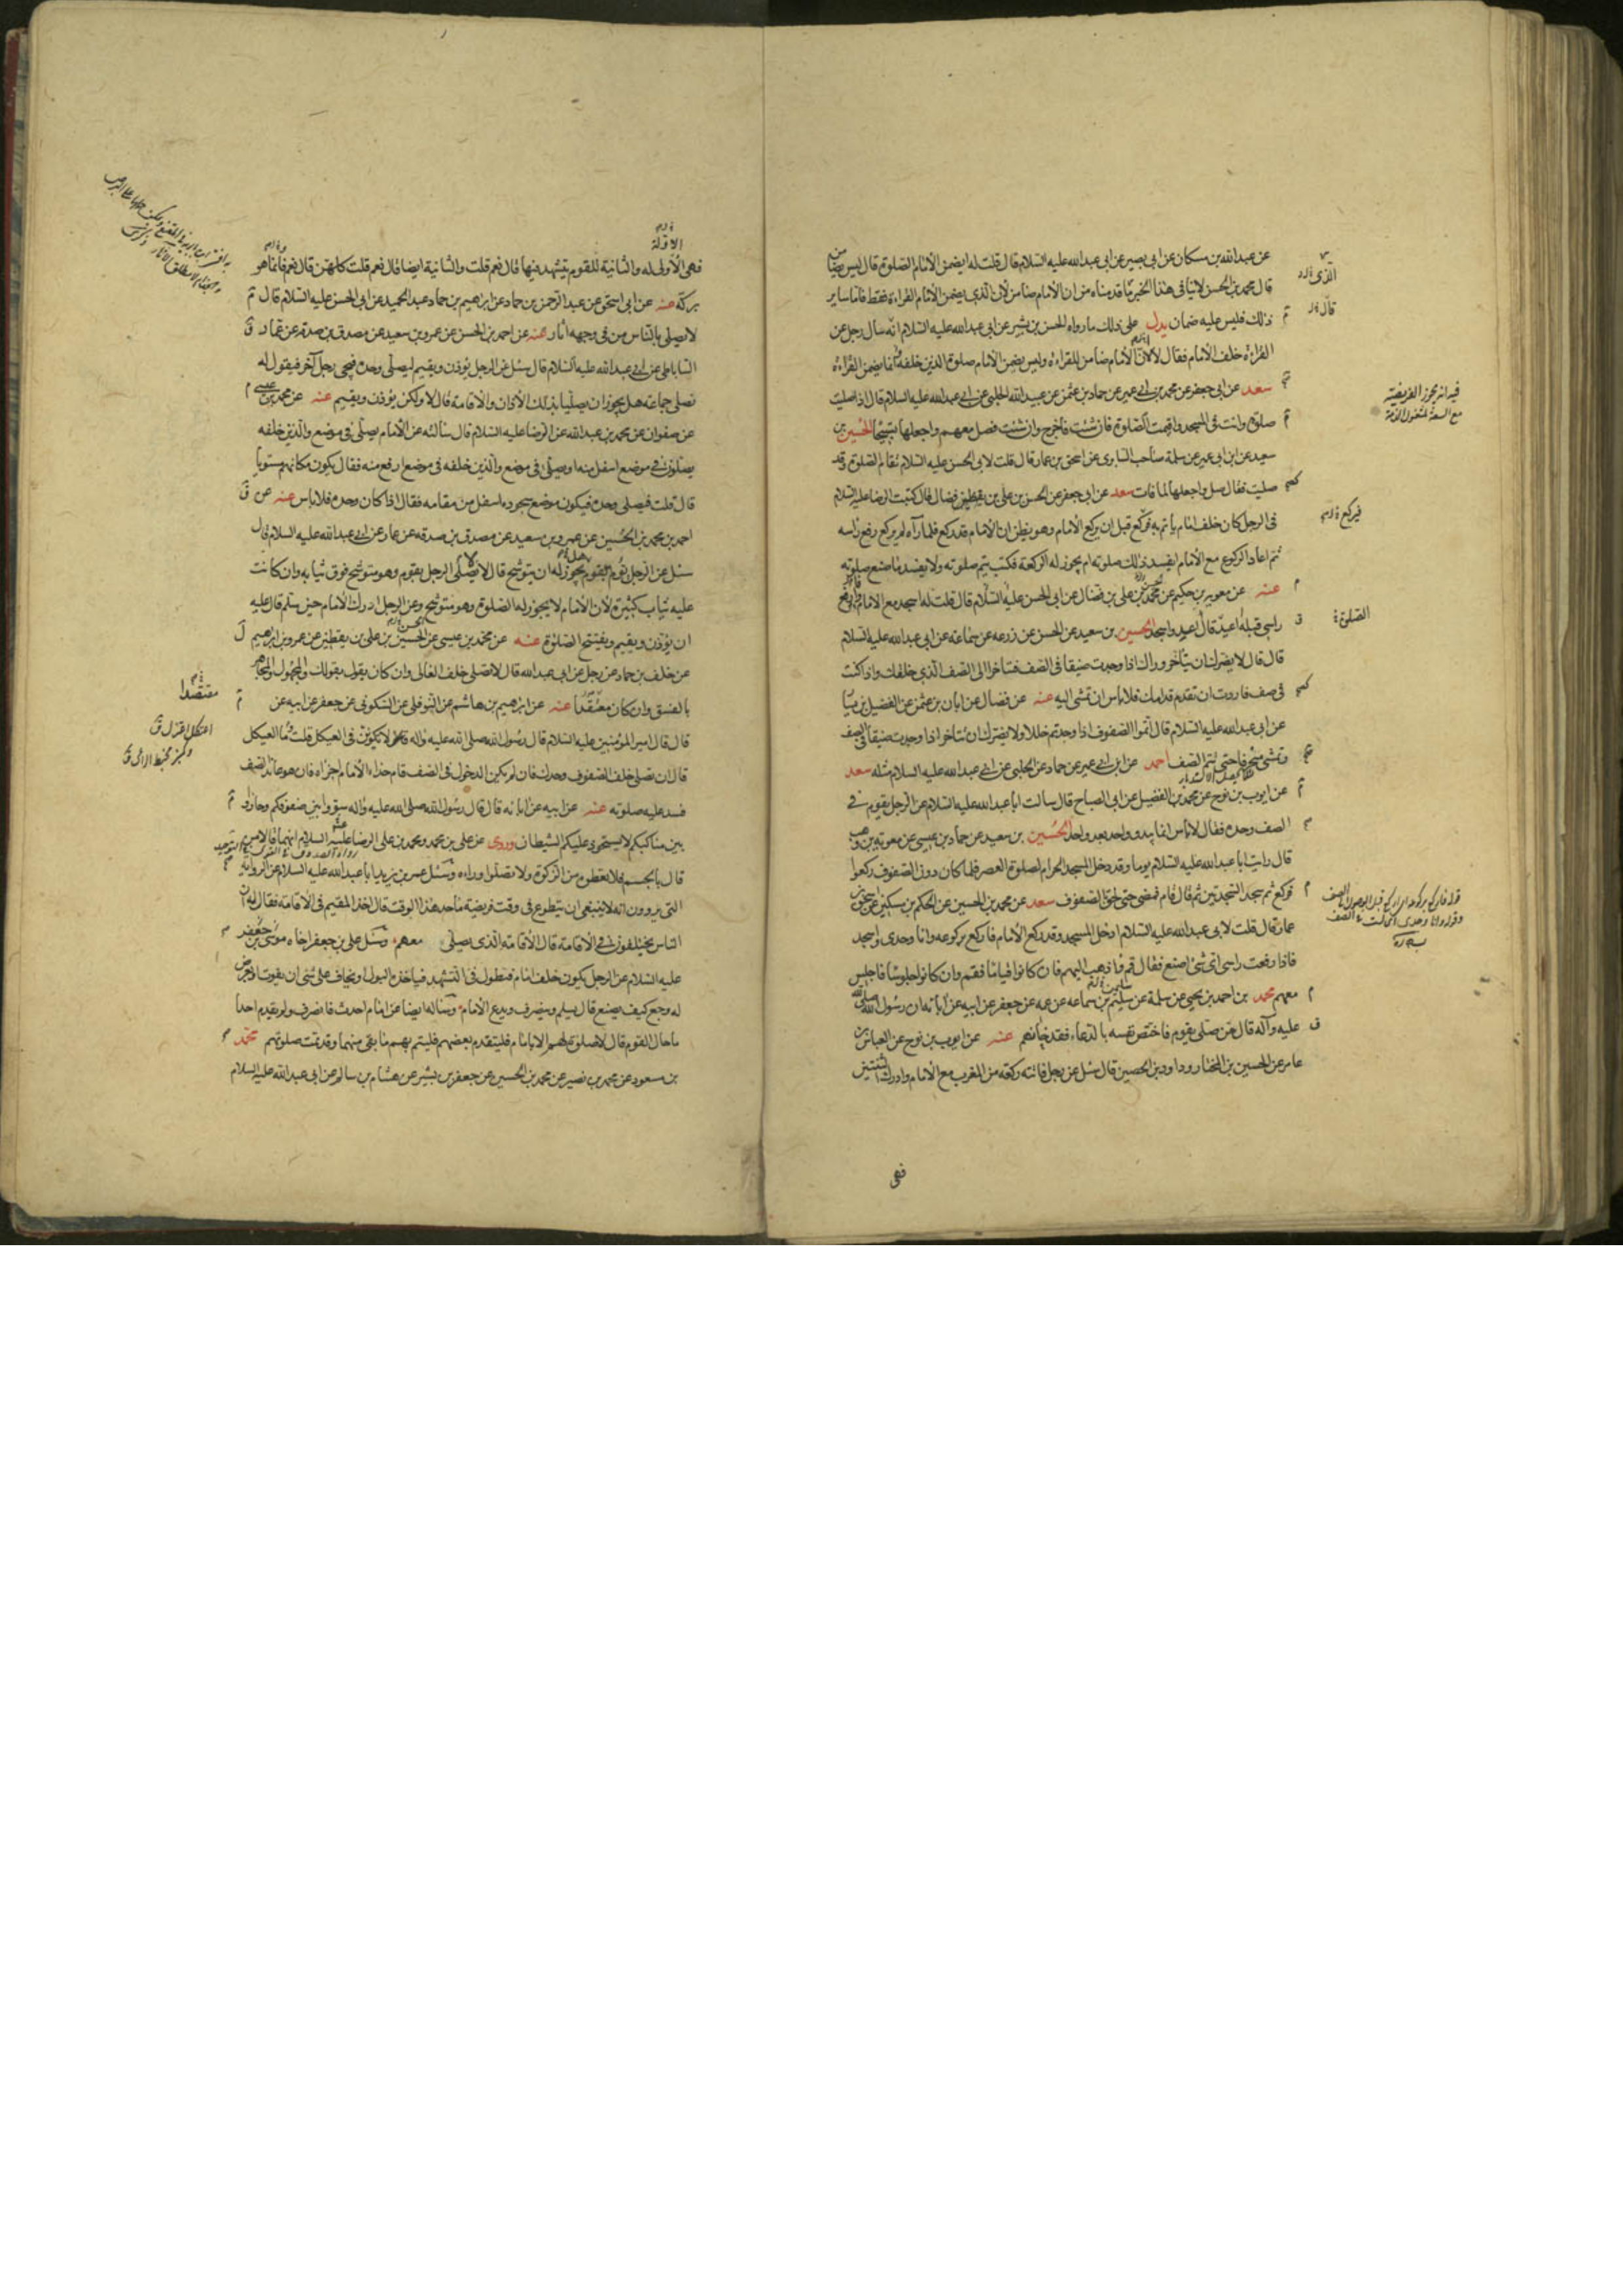 عن عبدالله بن مسكان عن ابى بصير عن ابى عبدالله عليه السلام قال قلت له ايضمن الامام الصلوة قال ليس بضامن
قال محمد بن الحسن لاينافى هذا الخبر ما قدمناه من ان الامام ضامن لان الذى يضمن الامام القراءة فقط فاما ساير
ذلك فليس عليه ضمان يدل على ذلك مارواه الحسن بن بشير عن ابى عبدالله عليه السلام انه سأل رجل عن
القراءة خلف الامام فقال لا لان الامام ضامن للقراءة وليس يضمن الامام صلوة الذين خلفه انما يضمن القراءة
سعد عن ابى جعفر عن محمد بن ابى عمير عن حماد بن عثمن عن عبيد الله الحلبى عن ابى عبدالله عليه السلام قال اذا صليت
صلوة وانت فى المسجد واقيمت الصلوة فان شئت فاخرج وان شئت فصل معهم واجعلها تسبيحا الحسين بن
سعيد عن ابن ابى عمير عن سلمة صاحب السابرى عن اسحق بن عمار قال قلت لابى الحسن عليه السلام تقام الصلوة وقد
صليت فقال صل واجعلها لما فات سعد عن ابى جعفر عن الحسن بن على بن فضال قال كتبت الرضا عليه السلام
فى الرجل كان خلف امام ياتم به فركع قبل ان يركع الامام وهو يظن ان الامام قد ركع فلما رآه لم يركع رفع راسه
ثم اعاد الركوع مع الامام ايفسد ذلك صلوته ام يجوز له الركعة فكتب يتم صلوته ولا يفسد ما صنع صلوته
عنه عن معوية بن حكيم عن محمد بن على بن فضال عن ابى الحسن عليه السلام قال قلت له اسجد مع الامام فارفع
راسى قبله اعيد قال اعيد واسجد الحسين بن سعيد عن الحسن عن زرعه عن سماعه عن ابى عبدالله عليه السلام
قال قال لايضرك ان تتأخر وراك اذا وجدت ضيقا فى الصف فتتأخر الى الصف الذى خلفك واذا كنت
فى صف فاردت ان تقدم قدامك فلا باس ان تمشى اليه عنه عن فضال عن ابان بن عثمن عن الفضيل بن يسار
عن ابى عبدالله عليه السلام قال اتموا الصفوف اذا وجدتم خللا ولا يضرك ان تتأخر اذا وجدت ضيقا فى الصف
وتمشى منحرفا حتى تتم الصف احمد عن ابن ابى عمير عن حماد عن الحلبى عن ابى عبدالله عليه السلام مثله سعد
عن ايوب بن نوح عن محمد بن الفضيل عن ابى الصباح قال سالت ابا عبدالله عليه السلام عن الرجل يقوم فى
الصف وحده فقال لاباس انما يبدو واحد بعد واحد الحسين بن سعيد عن حماد بن عيسى عن معوية بن وهب
قال رايت ابا عبدالله عليه السلام يوما وقد دخل المسجد الحرام لصلوة العصر فلما كان دون الصفوف ركعوا
فركع ثم سجد السجدتين ثم قام فمضى حتى لحق الصفوف سعد عن محمد بن الحسين عن الحكم بن مسكين عن اسحق بن
عمار قال قلت لابى عبدالله عليه السلام ادخل المسجد وقد ركع الامام فاركع بركوعه وانا وحدى واسجد
فاذا رفعت راسى اى شئ اصنع فقال قم فاذهب اليهم فان كانوا قياما فقم وان كانوا جلوسا فاجلس
معهم محمد بن احمد بن يحيى عن سلمة عن سليمن بن سماعه عن عمه عن جعفر عن ابيه عن آبائه ان رسول الله صلى الله
عليه وآله قال من صلى بقوم فاختص نفسه بالدعاء فقد خانهم عنه عن ايوب بن نوح عن العباس بن
عامر عن الحسين بن المختار وداود بن الحصين قال سئل عن رجل فاتته ركعة من المغرب مع الامام وادرك الثنتين
فهى
الذى
فيه انه يجوز الفريضة
فيركع
الصلوة
فهى الاولى له والثانية للقوم يتشهد فيها قال نعم قلت والثانية ايضا قال نعم قلت كلهن قال نعم فانما هو
بركة عنه عن ابى اسحق عن عبد الرحمن بن حماد عن ابرهيم بن عبد الحميد عن ابى الحسن عليه السلام قال
لايصلى بالناس من فى وجهه اثار عنه عن احمد بن الحسن عن عمرو بن سعيد عن مصدق بن صدقه عن عمار
الساباطى عن ابى عبدالله عليه السلام قال سئل عن الرجل يؤذن ويقيم ليصلى وحده فيجى رجل آخر فيقول له
نصلى جماعة هل يجوز ان يصليا بذلك الاذان والاقامة قال لا ولكن يؤذن ويقيم عنه عن محمد بن عيسى
عن صفوان عن محمد بن عبدالله عن الرضا عليه السلام قال سألته عن الامام يصلى فى موضع والذين خلفه
يصلون فى موضع اسفل منه او يصلى فى موضع والذين خلفه فى موضع ارفع منه فقال يكون مكانهم مستويا
قال قلت فيصلى وحده فيكون موضع سجوده اسفل من مقامه فقال اذا كان وحده فلا باس عنه عن
احمد بن محمد بن الحسين عن عمرو بن سعيد عن مصدق بن صدقه عن عمار عن ابى عبدالله عليه السلام قال
سئل عن الرجل يؤم بقوم يجوز له ان يتوشح قال لا يصلى الرجل بقوم وهو متوشح فوق ثيابه وان كانت
عليه ثياب كثيرة لان الامام لايجوز له الصلوة وهو متوشح وعن الرجل ادرك الامام حين سلم قال عليه
ان يؤذن ويقيم ويفتتح الصلوة عنه عن محمد بن عيسى عن الحسين بن على بن يقطين عن عمرو بن ابرهيم
عن خلف بن حماد عن رجل عن ابى عبدالله قال لا تصلى خلف الغالى وان كان يقول بقولك والمجهول والمجاهر
بالفسق وان كان مقتصدا عنه عن ابرهيم بن هاشم عن النوفلى عن السكونى عن جعفر عن ابيه عن
قال قال امير المؤمنين عليه السلام قال رسول الله صلى الله عليه واله لاتكونن فى العيكل قلت وما العيكل
قال ان تصلى خلف الصفوف وحدك فان لم يكن الدخول فى الصف قام حذاء الامام اجزاه فان هو عاند الصف
فسد عليه صلوته عنه عن ابيه عن ابائه قال قال رسول الله صلى الله عليه واله سووا بين صفوفكم وحاذوا
بين مناكبكم لايستحوذ عليكم الشيطان وروى عن على بن محمد ومحمد بن على الرضا عليه السلام انهما قالا من
قال بالجسم فلا تعطوه من الزكوة ولا تصلوا وراءه وسئل عمر بن يزيد ابا عبدالله عليه السلام عن الرواية
التى يروون انه لاينبغى ان يتطوع فى وقت فريضة ما حد هذا الوقت قال اخذ المقيم فى الاقامة فقال له ان
الناس يختلفون فى الاقامة قال الاقامة الذى يصلى معهم وسئل على بن جعفر اخاه موسى بن جعفر
عليه السلام عن الرجل يكون خلف امام فيطول فى التشهد فياخذه البول او يخاف على شئ ان يفوت او يعرض
له وجع كيف يصنع قال يسلم وينصرف ويدع الامام وسأله ايضا عن امام احدث فانصرف ولم يقدم احدا
ما حال القوم قال لا صلوة لهم الا بامام فليتقدم بعضهم فليتم بهم ما بقى منها وقد تمت صلوتهم محمد
بن مسعود عن محمد بن نصير عن محمد بن الحسين عن جعفر بن بشير عن هشام بن سالم عن ابى عبدالله عليه السلام
مقتصدا